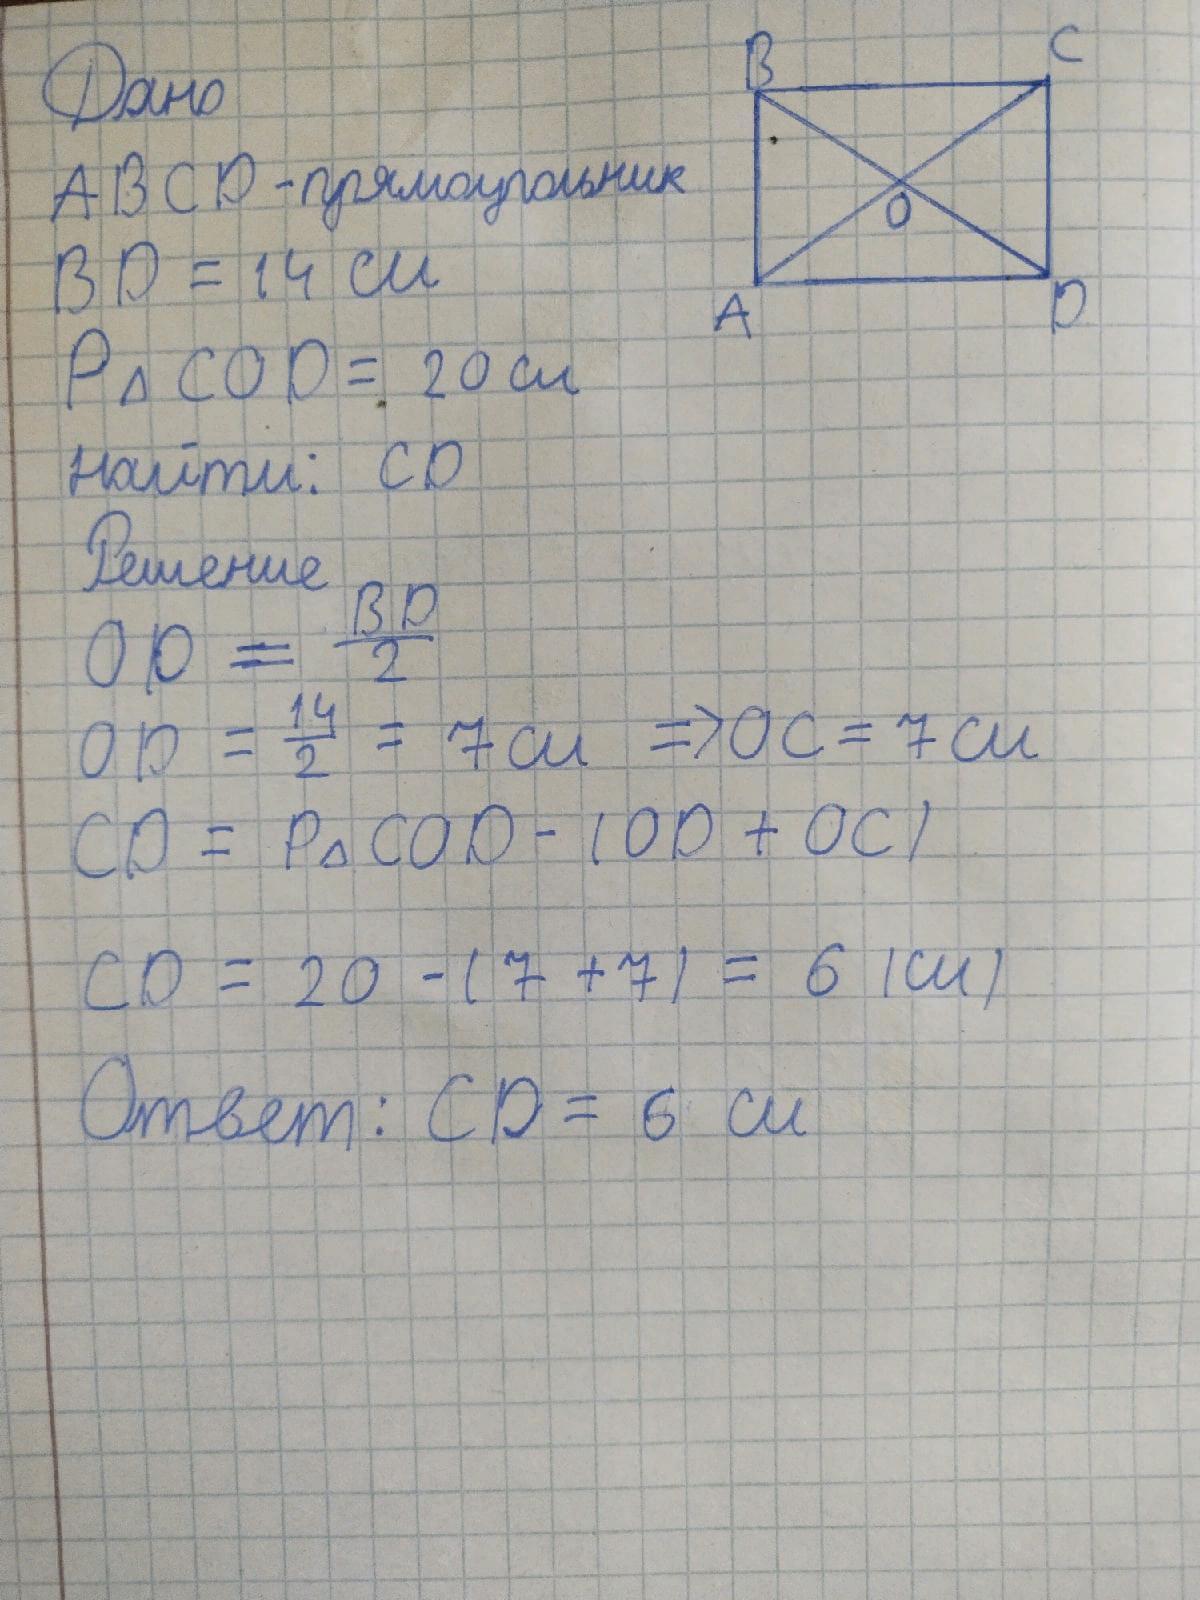 Дано
ABCD - прямоугольник
BD = 14 см
P△COD = 20 см
Найти: CD
Решение
OD = BD/2
OD = 14/2 = 7 см => OC = 7 см
CD = P△COD - (OD + OC)
CD = 20 - (7 + 7) = 6 (см)
Ответ: CD = 6 см
B
C
O
A
D